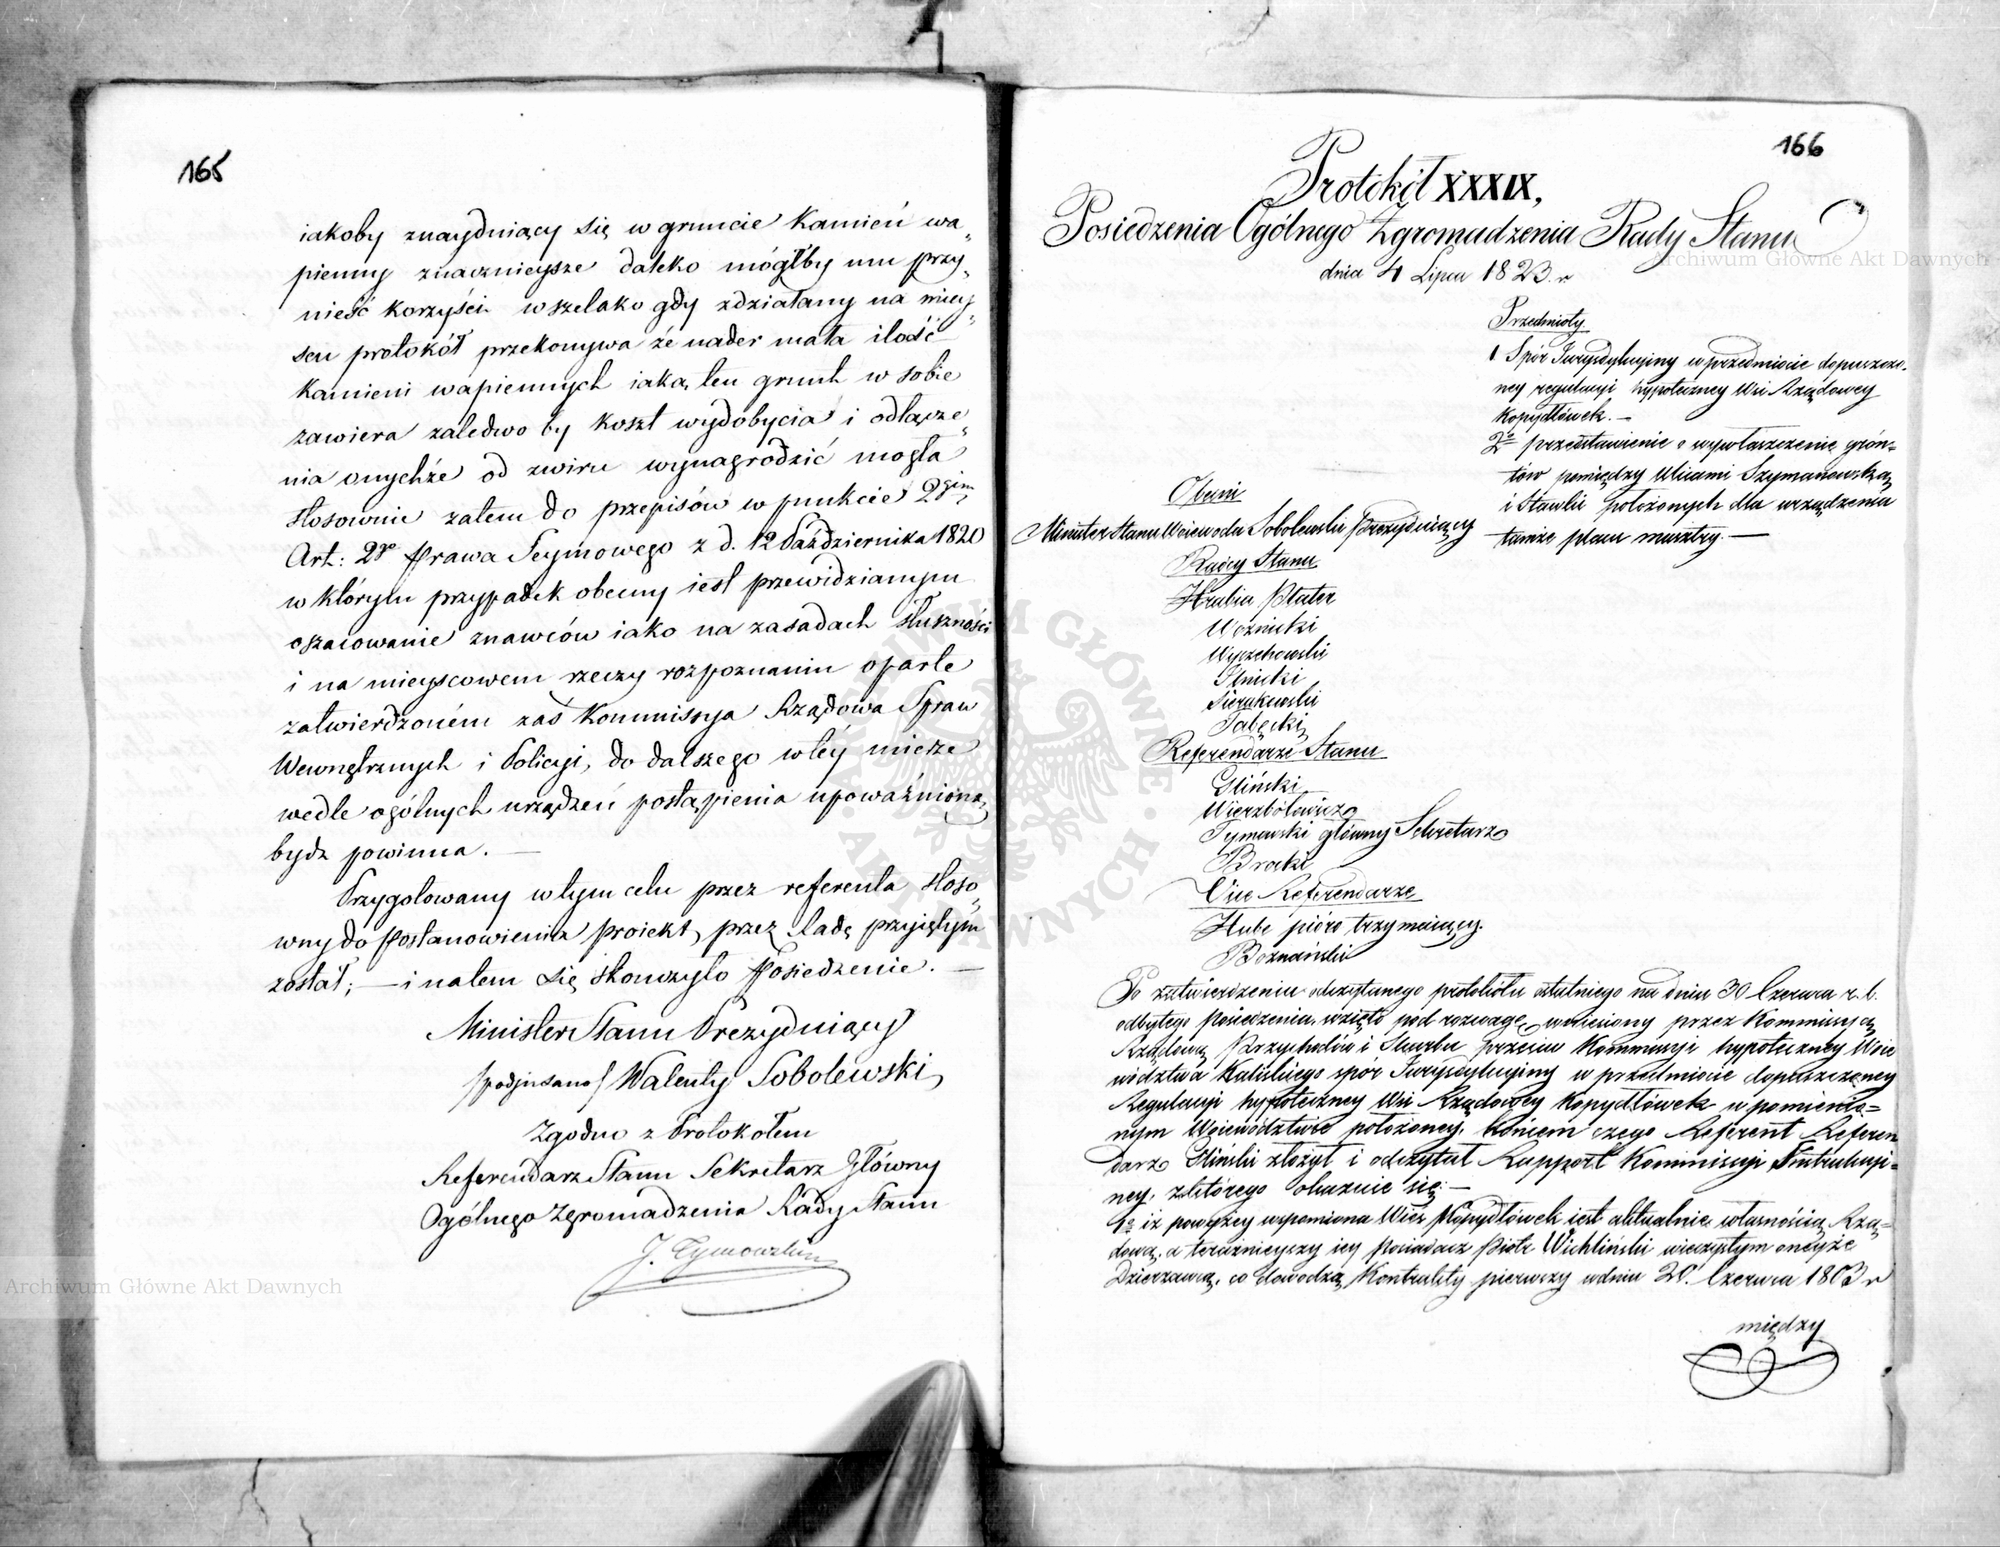 165
iakoby znayduiący się w gruncie Kamień wa„
pienny znacznieysze daleko mógłby mu przy„
nieść korzyści wszelako gdy zdziałany na miey„
scu protokół przekonywa że nader mała ilość
Kamieni wapiennych iaką ten grunt w sobie
zawiera zaledwo by koszt wydobycia i odłącze„
nia onychże od zwiru wynagrodzić mogła
stosownie zatem do przepisów w punkcie 2gim
Art: 2go Prawa Seymowego z d. 12 Października 1820
w którym przypadek obecny iest przewidzianym
oszacowanie znawców iako na zasadach słuszności
i na mieyscowem rzeczy rozpoznaniu oparte
zatwierdzoném zaś Kommissya Rządowa Spraw
Wewnętrznych i Policyi, do dalszego w téy mierze
wedle ogólnych urządzeń postąpienia upoważnioną
bydz powinna. —
Przygotowany w tym celu przez referenta stoso„
wny do Postanowienia proiekt, przez Radę przyiętym
został; — i natem się skończyło Posiedzenie. —
Minister Stanu Prezyduiący
/podpisano/ Walenty Sobolewski
Zgodno z Protokołem
Referendarz Stanu Sekretarz Główny
Ogólnego Zgromadzenia Rady Stanu
J. Tymowski
166
Protokół XXXIX,
Posiedzenia Ogólnego Zgromadzenia Rady Stanu
dnia 4 Lipca 1823. r
Przedmioty
1 Spór Jurysdykcyiny w przedmiocie dopuszczo„
ney regulacyi hypoteczney Wsi Rządowey
Kopydłówek. —
2o przedstawienie o wywłaszczenie grón„
tów pomiędzy Ulicami Szymanowską
i Stawki położonych dla urządzenia
tamże placu musztry. —
Obecni
Minister Stanu Woiewoda Sobolewski Prezyduiący
Radcy Stanu
Hrabia Plater
Woźnicki
Wyczechowski
Lnicki
Sierakowski
Referendarze Stanu
Gliński
Wierzbołowicz
Tymowski główny Sekretarz
Brocki
Vice Referendarze
Hube pióro trzymaiący.
Boznański
Po zatwierdzeniu odczytanego protokółu ostatniego na dniu 30 Czerwca r. b.
odbytego Posiedzenia, wzięto pod rozwagę wniesiony przez Kommissyą
Rządową Przychodów i Skarbu przeciw Kommissyi hypoteczney Woie
wództwa Kaliskiego spór Jurysdykcyiny w przedmiocie dopuszczoney
Regulacyi hypoteczney Wsi Rządowey Kopydłówek w pomienio=
nym Woiewództwie położoney, koncem czego Referent Referen
darz Gliński złożył i odczytał Rapport Kommissyi Instrukcyi=
ney, z którego okazuie się: —
1o iż powyżey wspomniona Wieś Kopydłówek iest aktualnie własnością Rzą=
dową, a teraźnieyszy iey Posiadacz Piotr Wichliński wieczystym oneyże
Dzierzawcą, co dowodzą Kontrakty pierwszy w dniu 20. Czerwca 1803 r
między
Archiwum Główne Akt Dawnych
Archiwum Główne Akt Dawnych
ARCHIWUM GŁÓWNE · AKT DAWNYCH ·